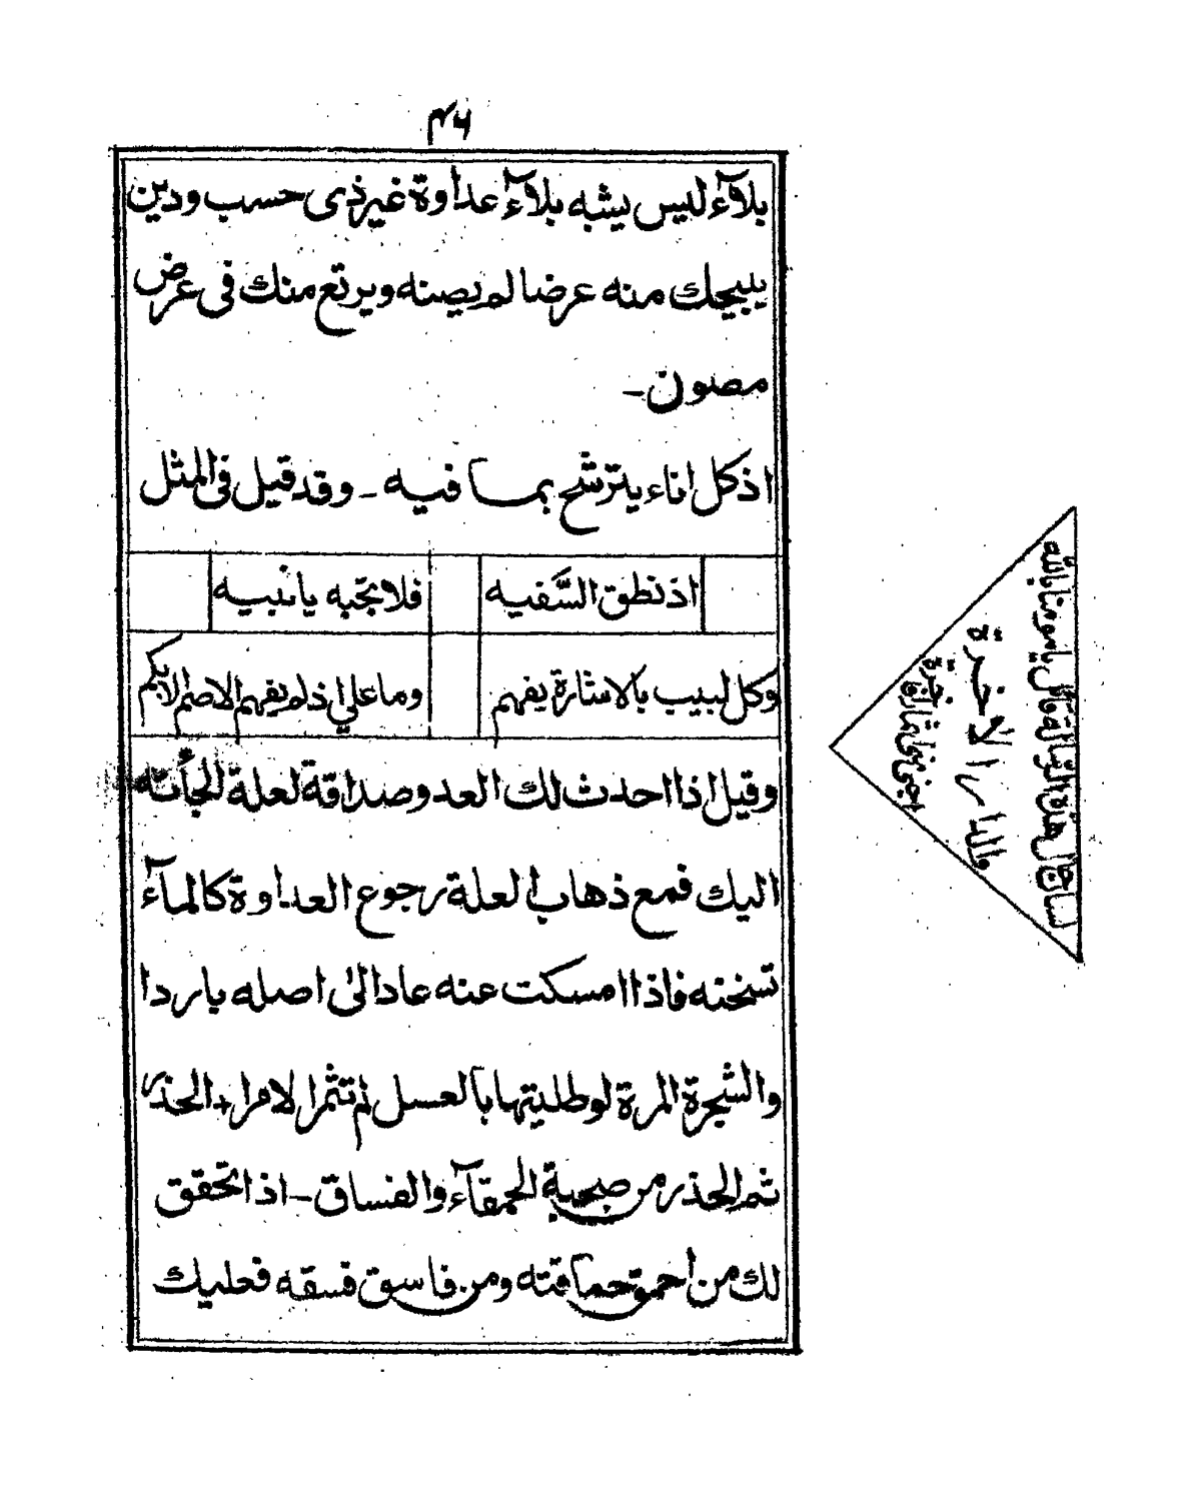 ۴۶
بلآء ليس يشبه بلآء عداوة غير ذى حسب ودين
يبيحك منه عرضا لم يصنه ويرتع منك فى عرض
مصون ـ
اذ كل اناء يترشح بما فيه ـ وقد قيل فى المثل
اذ نطق السَّفيه فلا تجبه يا نبيه
وكل لبيب بالاشارة يفهم وما على اذ لم يفهم الاصم الابكم
وقيل اذا احدث لك العدو صداقة لعلة الجأته
اليك فمع ذهاب العلة رجوع العداوة كالمآء
تسخنه فاذا امسكت عنه عاد الى اصله باردا
والشجرة المرة لو طليتها بالعسل لم تثمر الا مرا + الحذر
ثم الحذر من صحبة الحمقآء والفساق ـ اذا تحقق
لك من احمق حماقته ومن فاسق فسقه فعليك
والدار الآخرة